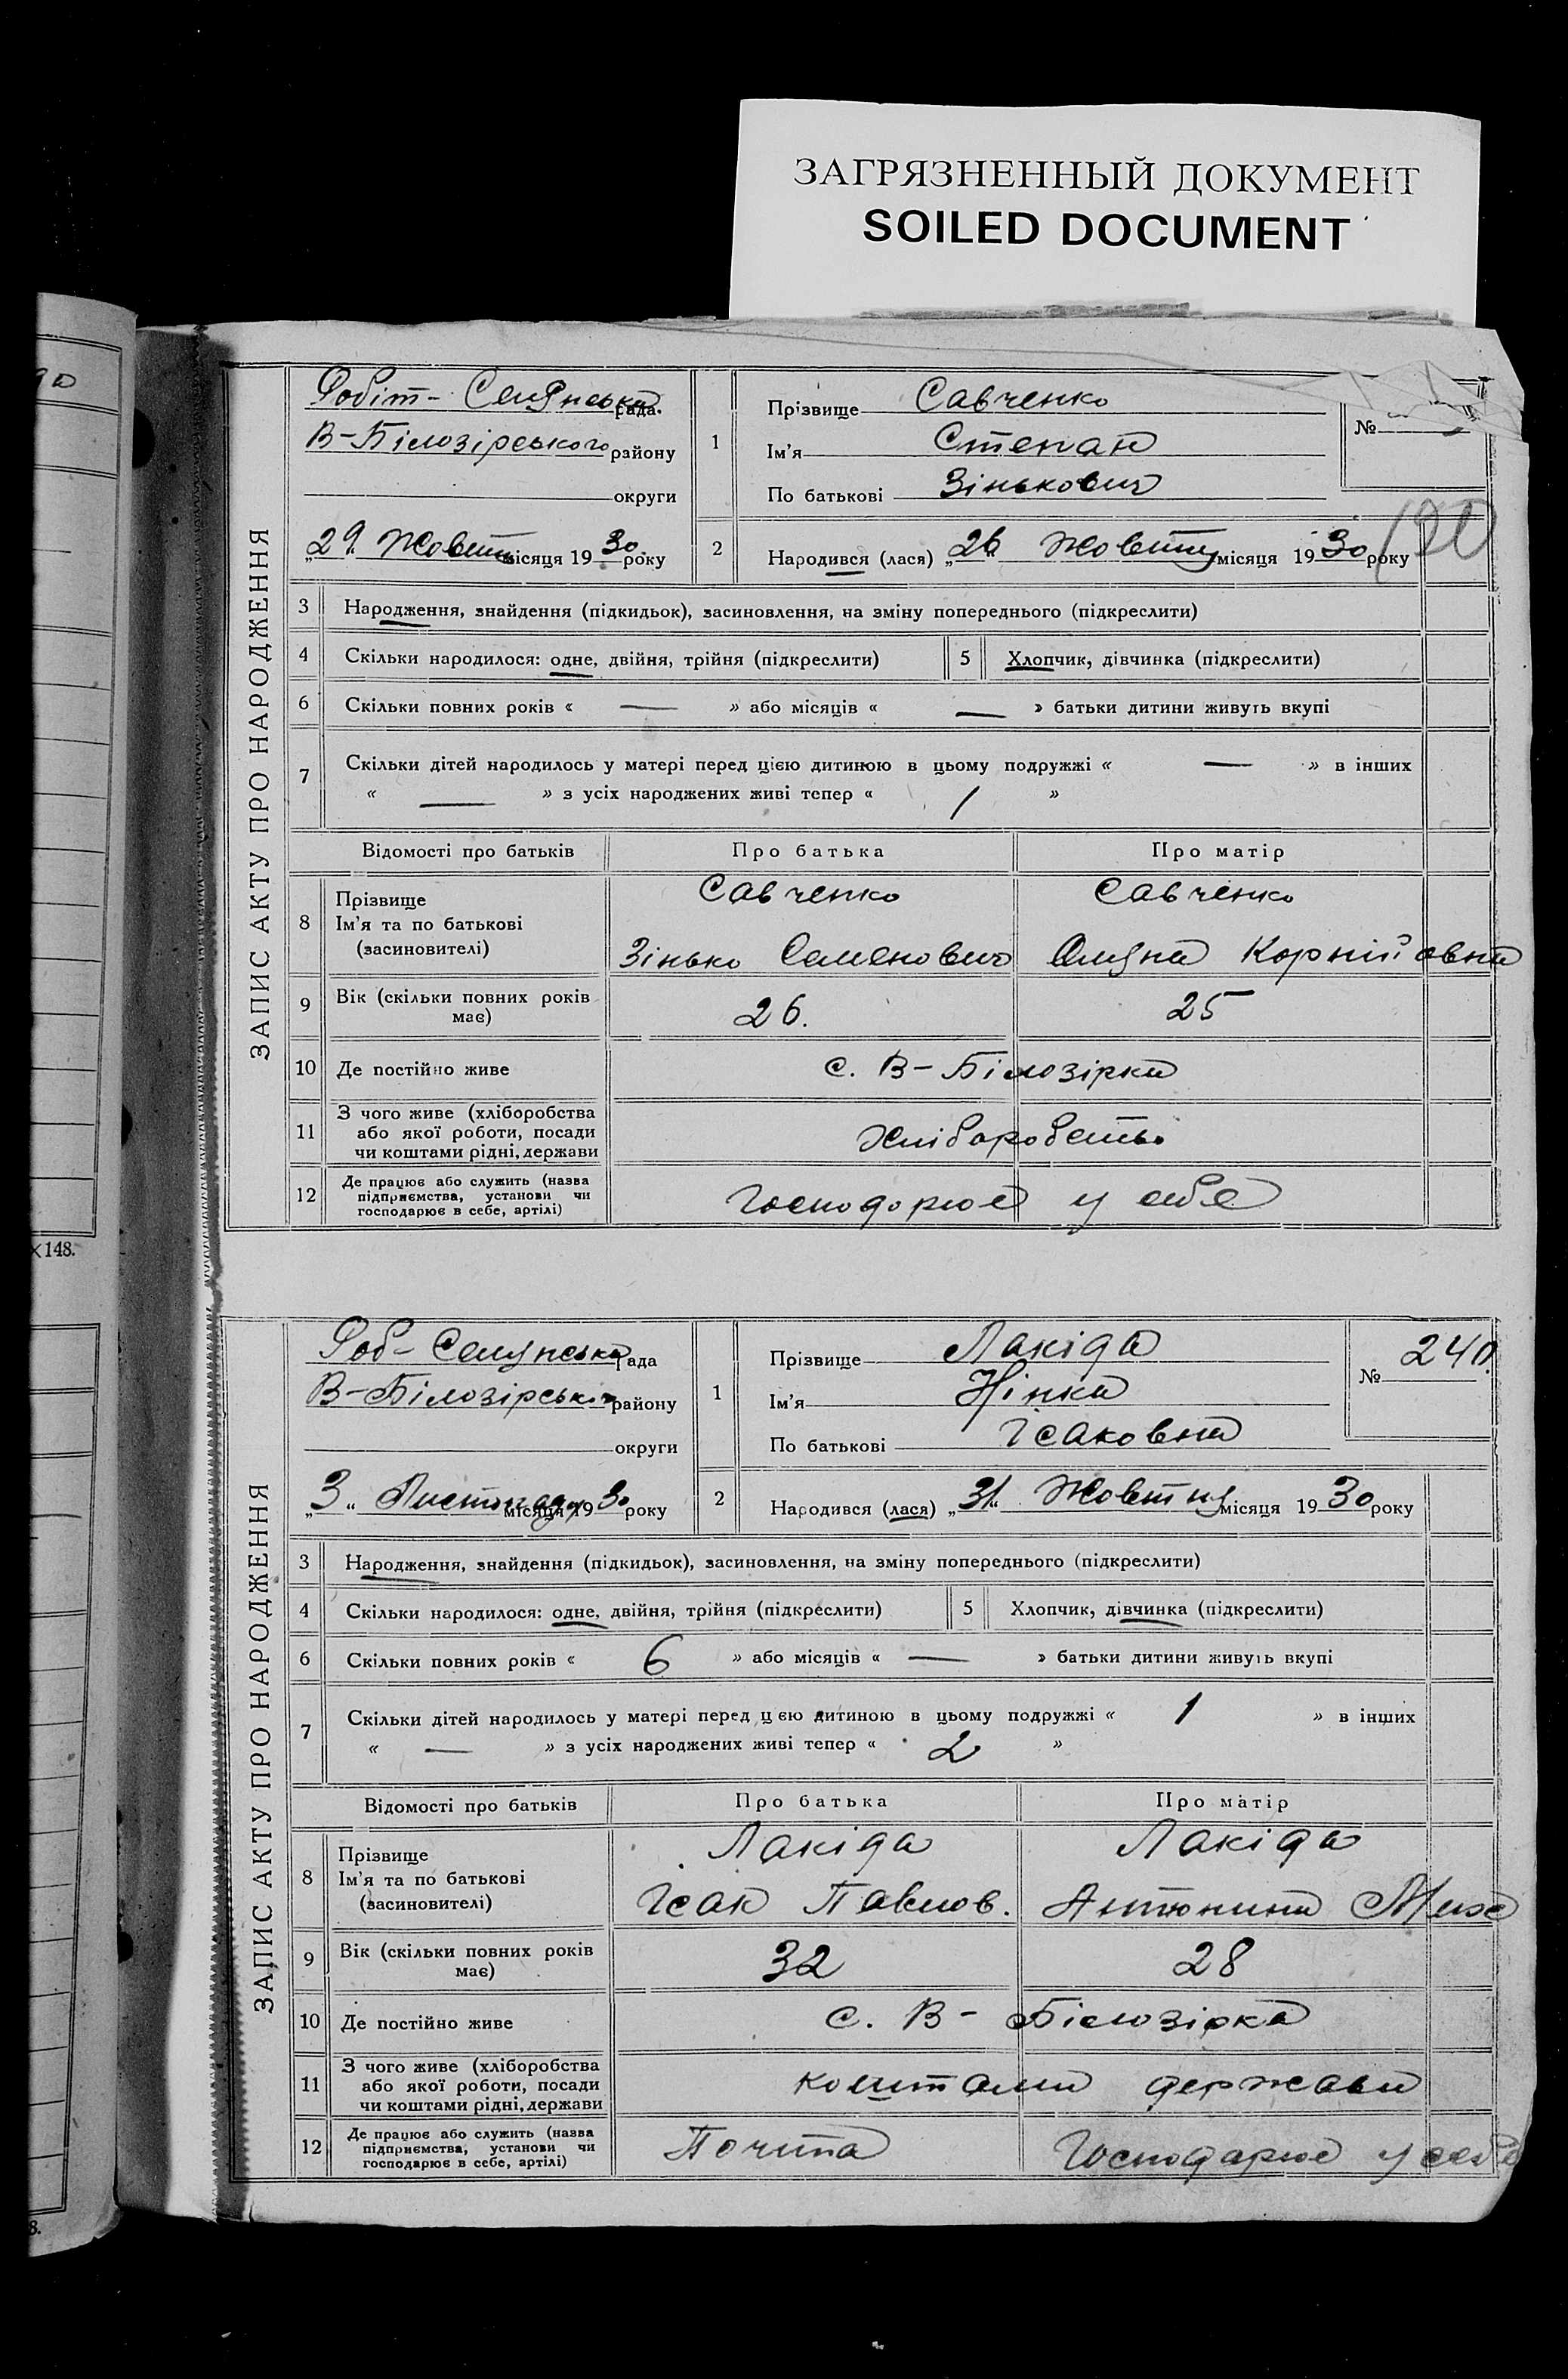 ЗАГРЯЗНЕННЫЙ ДОКУМЕНТ
SOILED DOCUMENT
×148.
8.
ЗАПИС АКТУ ПРО НАРОДЖЕННЯ
Робіт- Селянська рада.
В-Білозірського району
округи
„29. Жовтня місяця 1930. року
1
Прізвище Савченко
Ім'я Степан
По батькові Зінькович
№
190
2
Народився (лася) „26 Жовтня місяця 1930 року
3 Народження, знайдення (підкидьок), засиновлення, на зміну попереднього (підкреслити)
4 Скільки народилося: одне, двійня, трійня (підкреслити) 5 Хлопчик, дівчинка (підкреслити)
6 Скільки повних років « — » або місяців « — » батьки дитини живуть вкупі
7 Скільки дітей народилось у матері перед цією дитиною в цьому подружжі « — » в інших
« — » з усіх народжених живі тепер « 1 »
Відомості про батьків Про батька Про матір
8 Прізвище Савченко Савченко
Ім'я та по батькові
(засиновителі) Зінько Семенович Корніїовна
9 Вік (скільки повних років має) 26. 25
10 Де постійно живе с. В-Білозірка
11 З чого живе (хліборобства
або якої роботи, посади
чи коштами рідні, держави Хліборобство
12 Де працює або служить (назва
підприємства, установи чи
господарює в себе, артілі) Господорює у себе
ЗАПИС АКТУ ПРО НАРОДЖЕННЯ
Роб- Селянська рада
В-Білозірського району
округи
„3 „ Листопаду місяця 1930 року
1
Прізвище Лакіда
Ім'я Нінка
По батькові Ісаковна
№ 240.
2
Народився (лася) „31 Жовтня місяця 1930 року
3 Народження, знайдення (підкидьок), засиновлення, на зміну попереднього (підкреслити)
4 Скільки народилося: одне, двійня, трійня (підкреслити) 5 Хлопчик, дівчинка (підкреслити)
6 Скільки повних років « 6 » або місяців « — » батьки дитини живуть вкупі
7 Скільки дітей народилось у матері перед цією дитиною в цьому подружжі « 1 » в інших
« — » з усіх народжених живі тепер « 2 »
Відомості про батьків Про батька Про матір
8 Прізвище Лакіда Лакіда
Ім'я та по батькові
(засиновителі) Ісак Павлов. Антонина
9 Вік (скільки повних років має) 32 28
10 Де постійно живе с. В- Білозірка
11 З чого живе (хліборобства
або якої роботи, посади
чи коштами рідні, держави коштами держави
12 Де працює або служить (назва
підприємства, установи чи
господарює в себе, артілі) Почта Господарює у себе